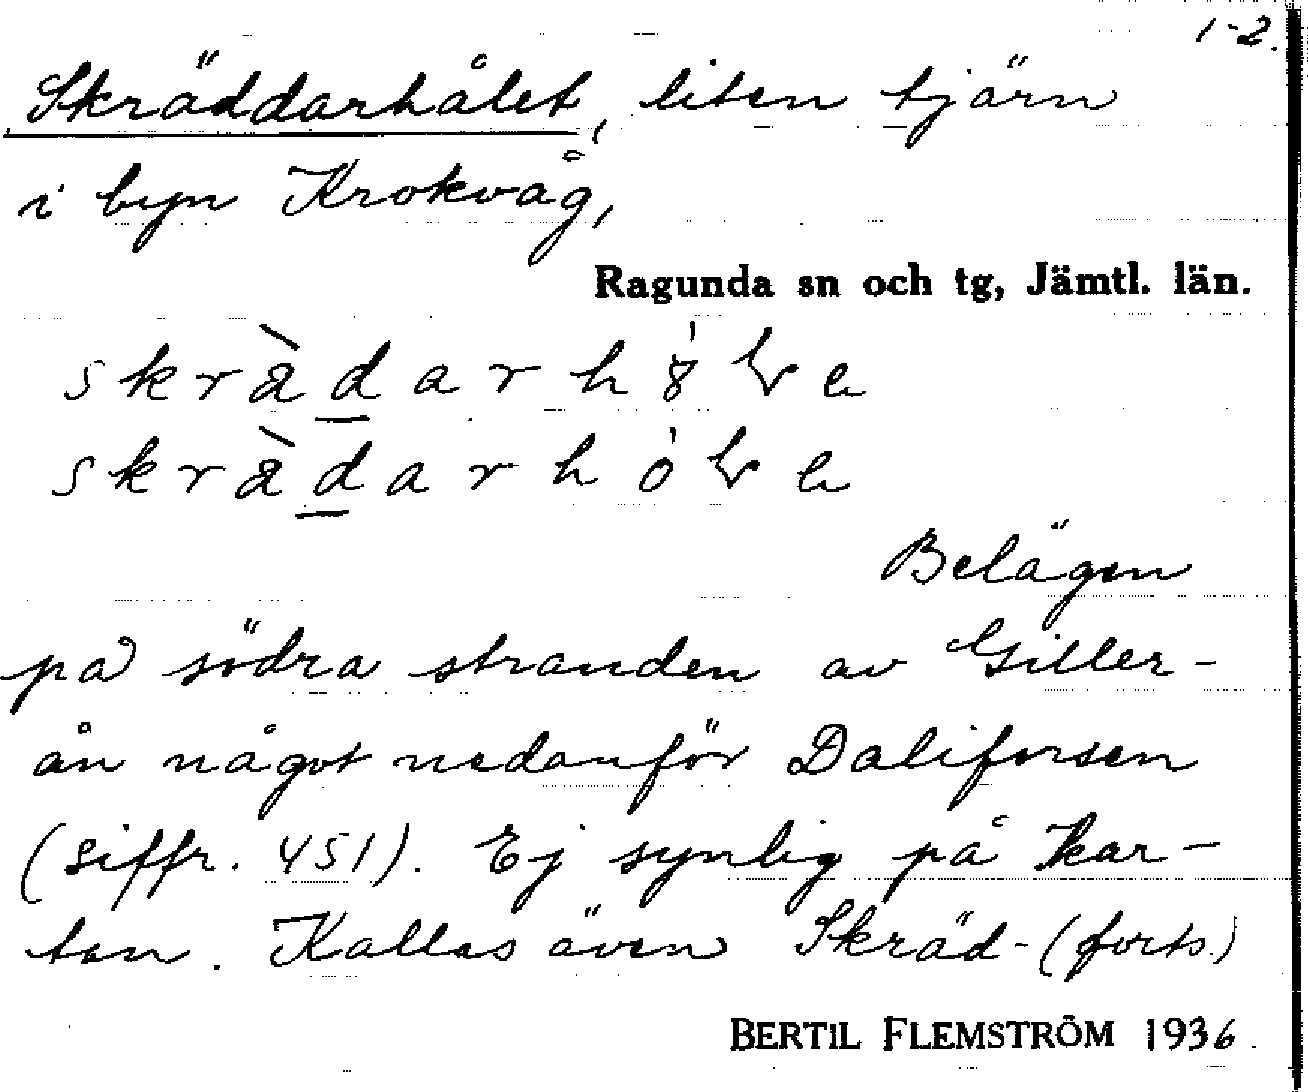 1-2.
Skräddarhålet, liten tjärn
i byn Krokvåg,
Ragunda sn och tg, Jämtl. län.
Belägen
på södra stranden av Giller-
ån något nedanför Daliforsen
(siffr. 451). Ej synlig på kar-
tan. Kallas även Skräd-(forts.)
BERTIL FLEMSTRÖM 1936.